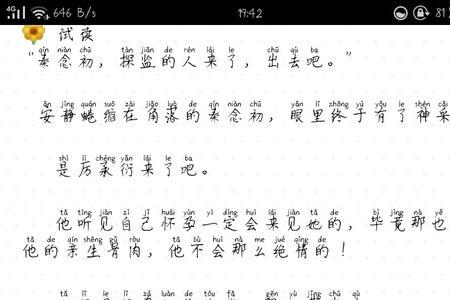 4G 646 B/s 19:42 81
试读
qín niàn chū tàn jiān de rén lái le chū qù ba
“秦念初，探监的人来了，出去吧。”
ān jìng quán suō zài jiǎo luò de qín niàn chū yǎn lǐ zhōng yú yǒu le shén cǎi
安静蜷缩在角落的秦念初，眼里终于有了神采
shì lì chéng yǎn lái le ba
是厉承衍来了吧。
tā tīng jiàn zì jǐ huái yùn yī dìng huì lái jiàn tā de bì jìng nà yě
他听见自己怀孕一定会来见她的，毕竟那也
tā de qīn shēng gǔ ròu tā bù huì nà me jué qíng de
他的亲生骨肉，他不会那么绝情的！